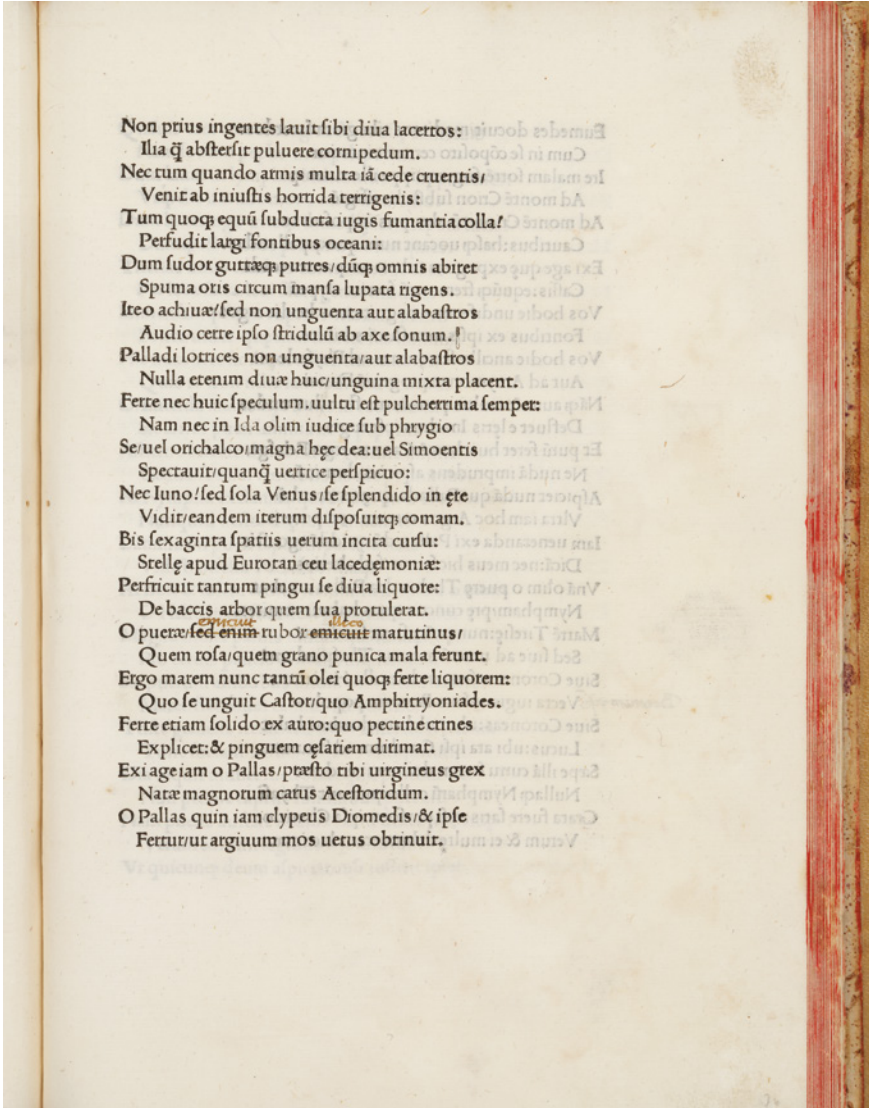 Non prius ingentes lauit ſibi diua lacertos:
Ilia q̃ abſterſit puluere cornipedum.
Nec tum quando armis multa iã cede cruentis/
Venit ab iniuſtis horrida terrigenis:
Tum quoqꝫ equũ ſubducta iugis fumantia colla!
Perfudit largi fontibus oceani:
Dum ſudor guttæqꝫ putres/dũqꝫ omnis abiret
Spuma oris circum manſa lupata rigens.
Ite o achiuæ!ſed non unguenta aut alabaſtros
Audio certe ipſo ſtridulũ ab axe ſonum.
Palladi lotrices non unguenta/aut alabaſtros
Nulla etenim diuæ huic/unguina mixta placent.
Ferte nec huic ſpeculum.uultu eſt pulcherrima ſemper:
Nam nec in Ida olim iudice ſub phrygio
Se/uel orichalco/magna hęc dea:uel Simoentis
Spectauit/quanq̃ uertice perſpicuo:
Nec Iuno!ſed ſola Venus/ſe ſplendido in ęre
Vidit/eandem iterum diſpoſuitqꝫ comam.
Bis ſexaginta ſpatiis uerum incita curſu:
Stellę apud Eurotan ceu lacedęmoniæ:
Perfricuit tantum pingui ſe diua liquore:
De baccis arbor quem ſua protulerat.
emicuit illico
O pueræ/ſed enim rubor emicuit matutinus/
Quem roſa/quem grano punica mala ferunt.
Ergo marem nunc tantũ olei quoqꝫ ferte liquorem:
Quo ſe unguit Caſtor/quo Amphitryoniades.
Ferte etiam ſolido ex auro:quo pectine crines
Explicet:& pinguem cęſariem dirimat.
Exi age iam o Pallas/præſto tibi uirgineus grex
Natæ magnorum catus Aceſtoridum.
O Pallas quin iam clypeus Diomedis/& ipſe
Fertur/ut argiuum mos uetus obtinuit.